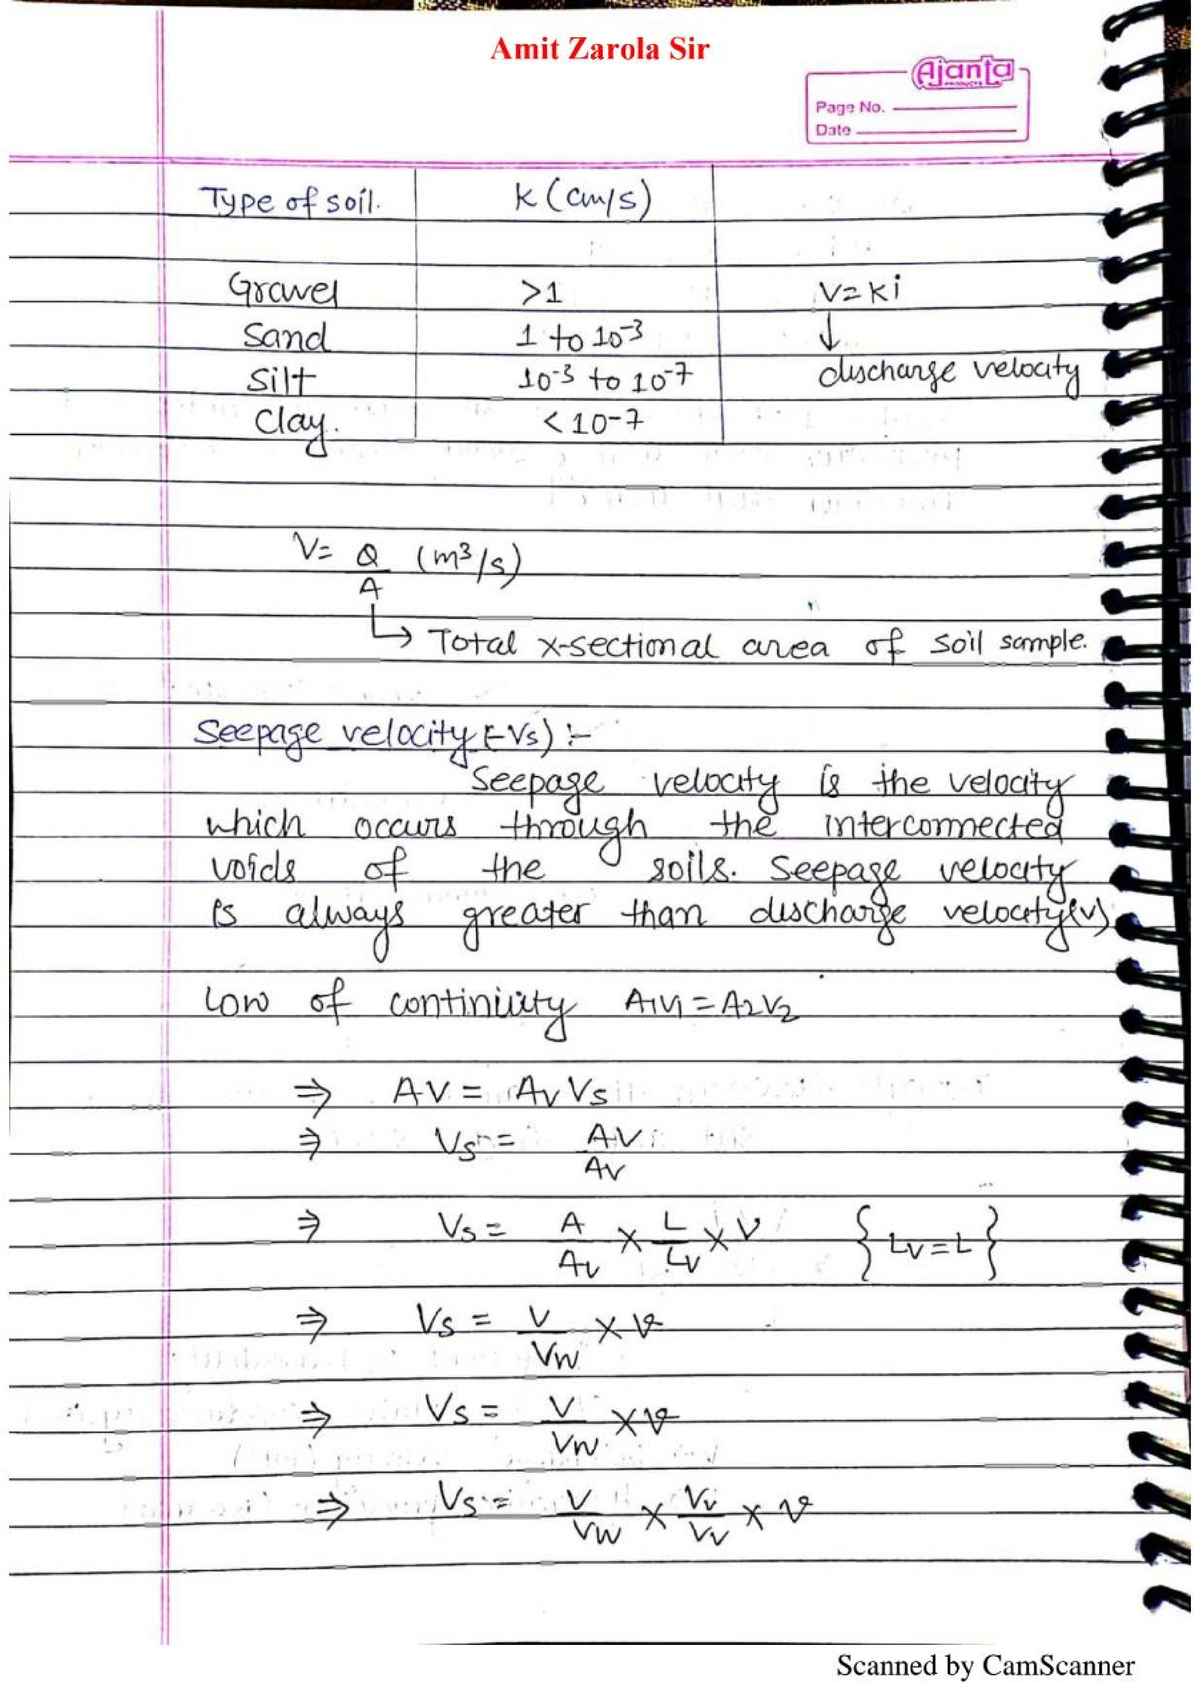 Amit Zarola Sir
Ajanta
Page No.
Date
Type of soil. K (cm/s)
Gravel >1 V=Ki
Sand 1 to 10⁻³ ↓
Silt 10⁻³ to 10⁻⁷ discharge velocity
Clay. <10⁻⁷
V= Q/A (m³/s)
↳ Total x-sectional area of soil sample.
Seepage velocity (Vs) :-
Seepage velocity is the velocity
which occurs through the interconnected
voids of the soils. Seepage velocity
is always greater than discharge velocity(v)
Low of continiuty A₁V₁ = A₂V₂
⇒ AV = Av Vs
⇒ Vs = AV/Av
⇒ Vs = A/Av × L/Lv × V { Lv = L }
⇒ Vs = V/Vw × v
⇒ Vs = V/Vw × v
⇒ Vs = V/Vw × Vv/Vv × v
Scanned by CamScanner